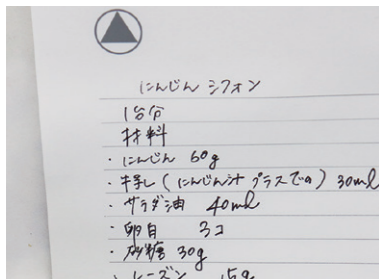 にんじん シフォン
1台分
材料
・にんじん 60g
・牛乳 (にんじん汁 プラスでの) 30ml
・サラダ油 40ml
・卵白 3コ
・砂糖 30g
・レーズン 15g